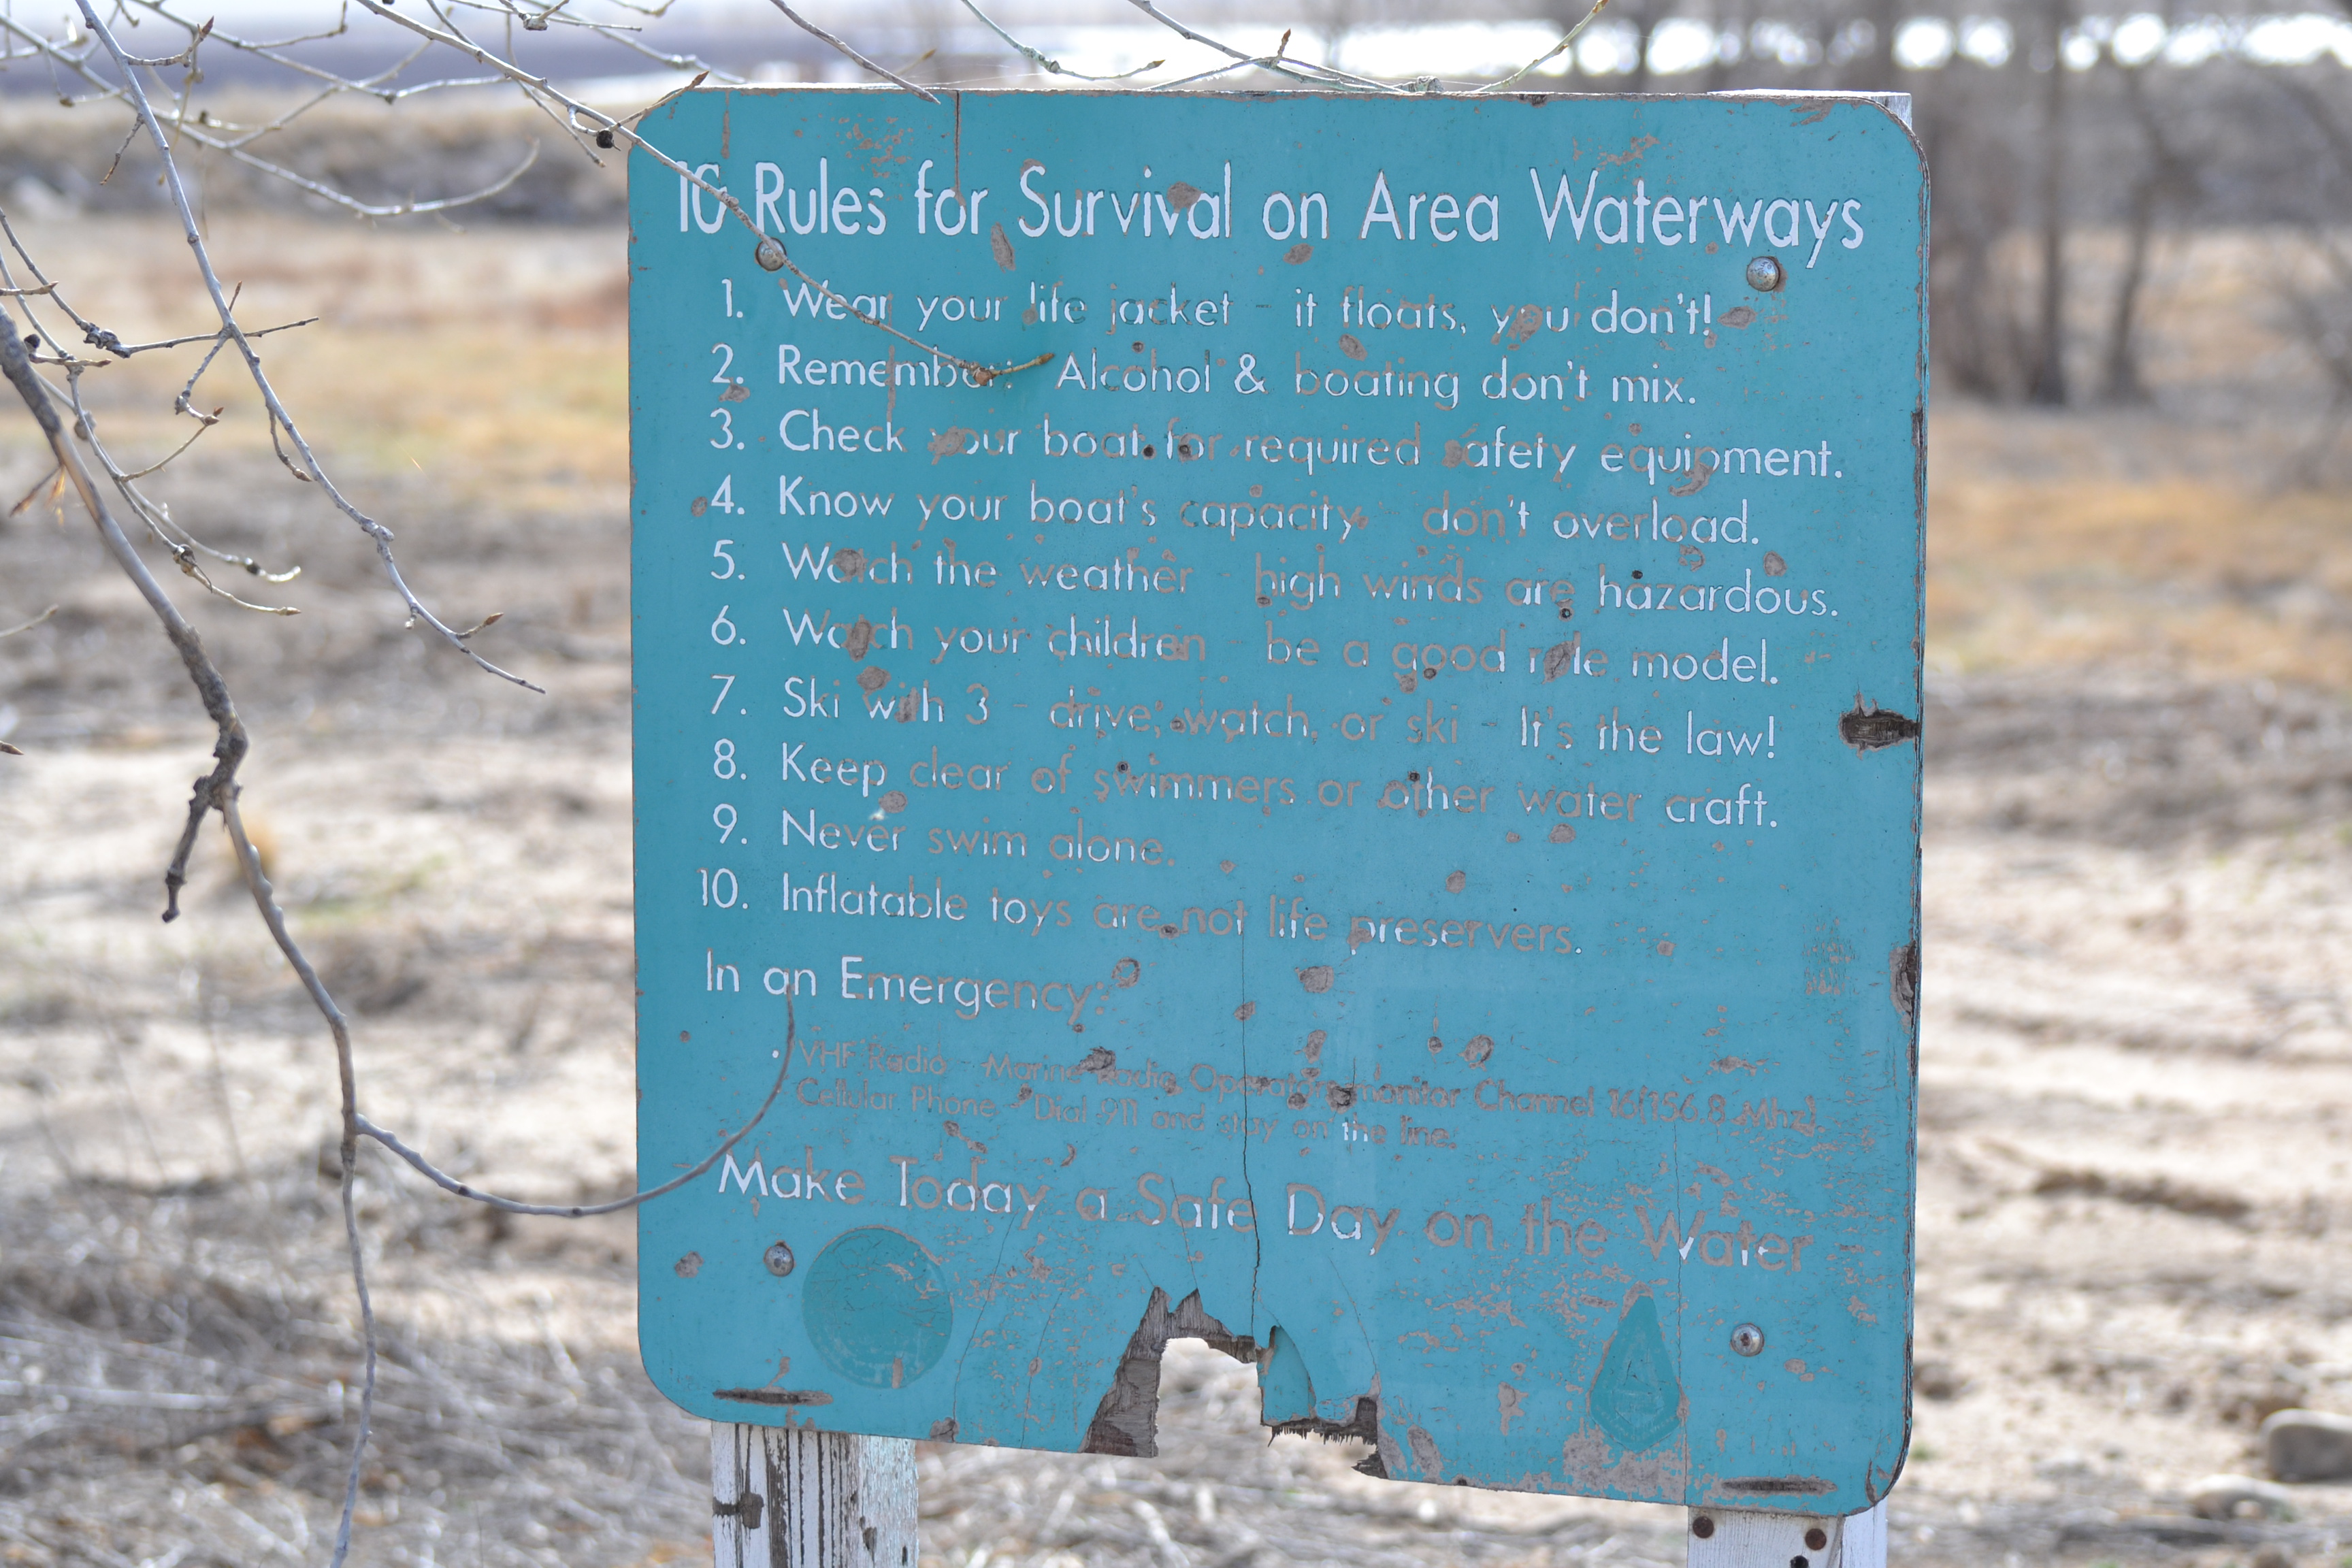 10 Rules for Survival on Area Waterways
1. Wear your life jacket - it floats, you don't!
2. Remember: Alcohol & boating don't mix.
3. Check your boat for required safety equipment.
4. Know your boat's capacity - don't overload.
5. Watch the weather - high winds are hazardous.
6. Watch your children - be a good role model.
7. Ski with 3 - drive, watch, or ski - It's the law!
8. Keep clear of swimmers or other water craft.
9. Never swim alone.
10. Inflatable toys are not life preservers.
In an Emergency:
· VHF Radio - Marine Radio Operators monitor Channel 16(156.8 Mhz).
Cellular Phone - Dial 911 and stay on the line.
Make Today a Safe Day on the Water